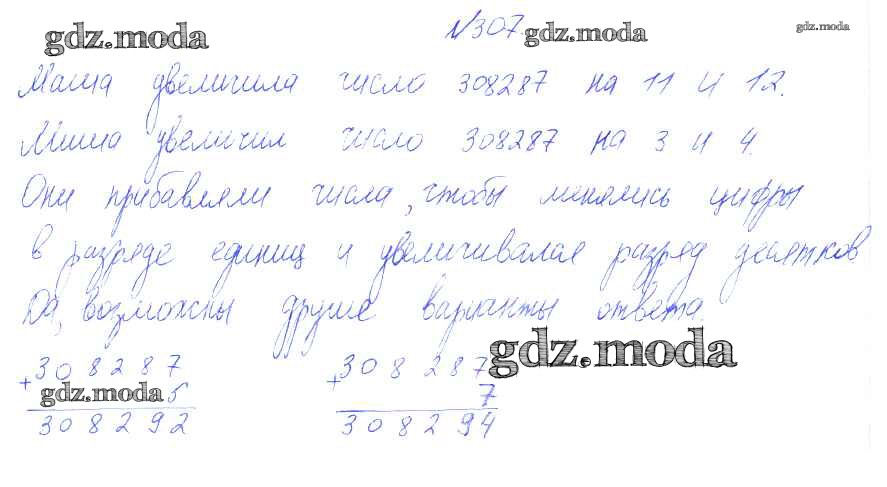 gdz.moda
№307.
gdz.moda
gdz.moda
Маша увеличила число 308287 на 11 и 12.
Миша увеличил число 308287 на 3 и 4.
Они прибавляли числа, чтобы менялись цифры
в разряде единиц и увеличивался разряд десятков
Да, возможны другие варианты ответа.
gdz.moda
308287 308287
+ gdz.moda 5 + 7
308292 308294